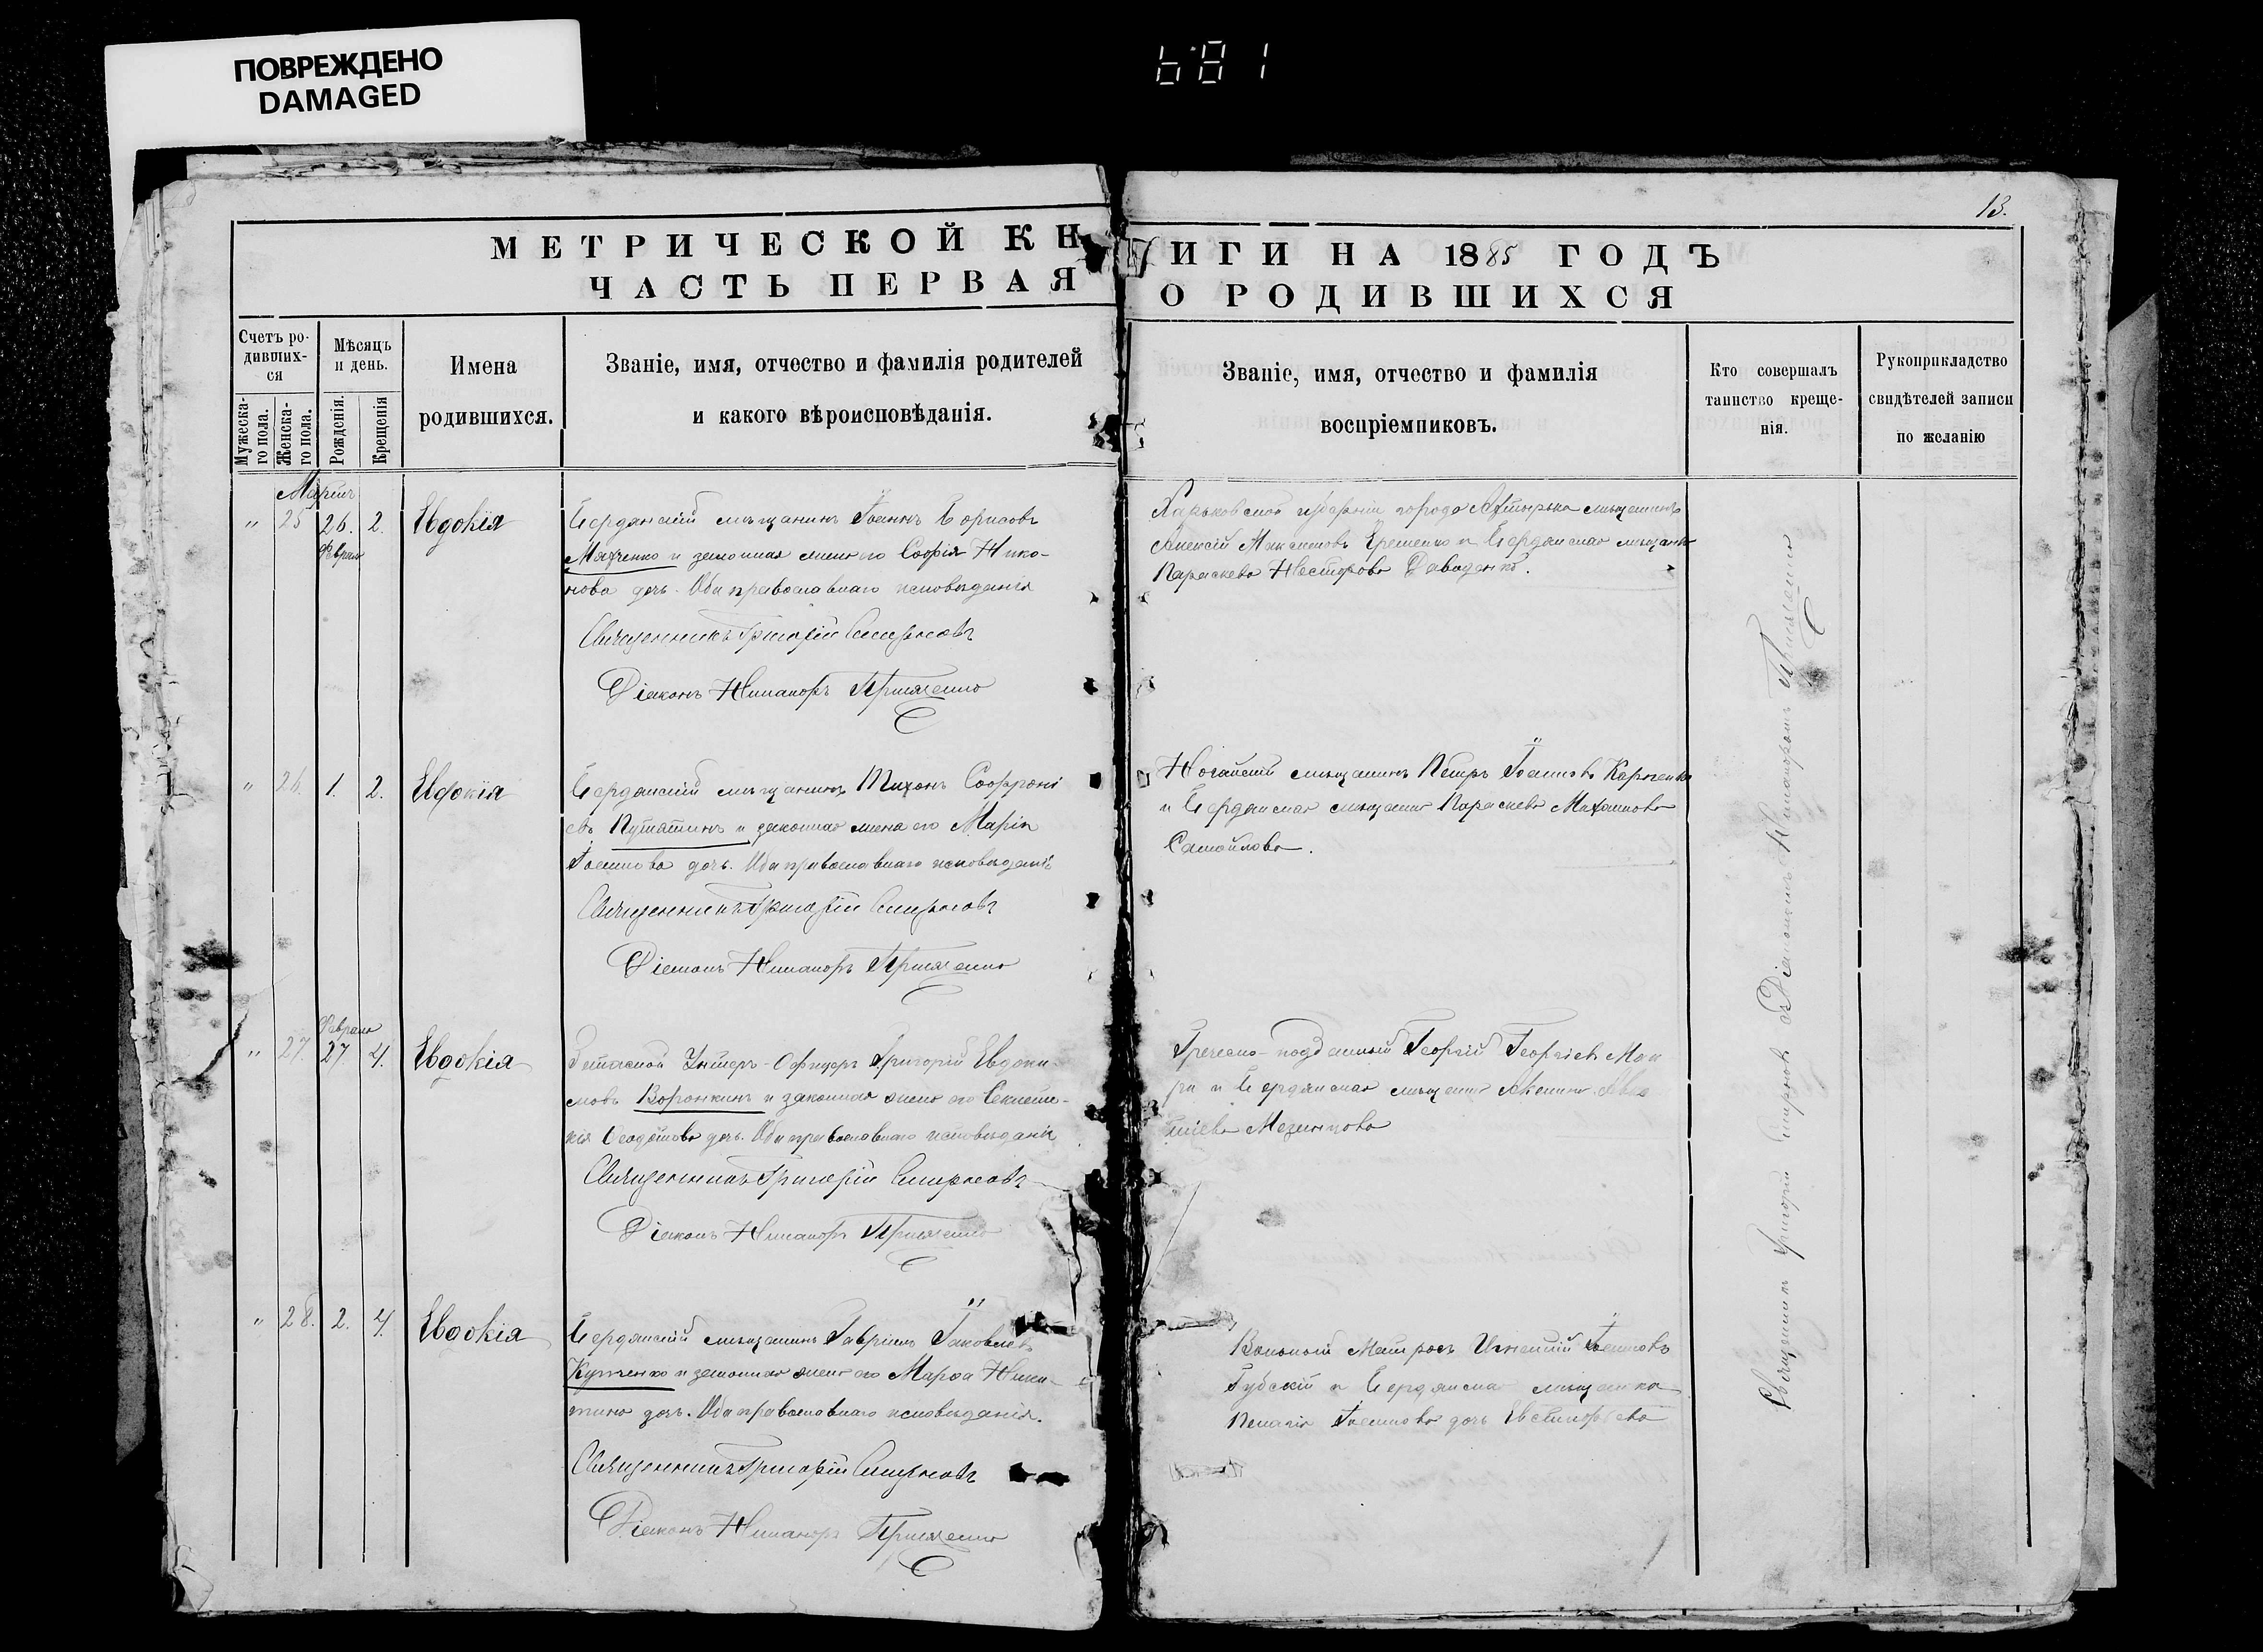 ПОВРЕЖДЕНО
DAMAGED
681
13.
МЕТРИЧЕСКОЙ КНИГИ НА 1885 ГОДЪ
ЧАСТЬ ПЕРВАЯ О РОДИВШИХСЯ
Счетъ ро-
дивших-
ся
Мужеска-
го пола.
Женска-
го пола.
Мѣсяцъ
и день.
Рожденія.
Крещенія
Имена
родившихся.
Званіе, имя, отчество и фамилія родителей
и какого вѣроисповѣданія.
Званіе, имя, отчество и фамилія
воспріемниковъ.
Кто совершалъ
таинство креще-
нія.
Рукоприкладство
свидѣтелей записи
по желанію
Мартъ
" 25 26. 2. Евдокія
Февраля
Бердянскій мѣщанинъ Іоаннъ Борисовъ
и законная жена его Софія Нико-
нова дочь. Оба православнаго исповѣданія
Священникъ Григорій Смирновъ
Діаконъ Никаноръ
Харьковской губерніи города Ахтырка мѣщанинъ
Алексій Максимовъ и Бердянская мѣщанка
Параскева Несторова Давиденко.
" 26. 1. 2. Евдокія
Бердянскій мѣщанинъ Тихонъ Софроні
евъ Путятинъ и законная жена его Марія
Іоаннова дочь. Оба православнаго исповѣданія
Священникъ Григорій Смирновъ
Діаконъ Никаноръ
Ногайскій мѣщанинъ Петръ Іоанновъ
и Бердянская мѣщанка Параскева Михайлова
Самойлова.
Февраля
" 27. 27 4. Евдокія
Унтеръ-Офицеръ Григорій Евдоки-
мовъ Воронкинъ и законная жена его
Ѳеодотова дочь. Оба православнаго исповѣданія
Священникъ Григорій Смирновъ
Діаконъ Никаноръ
Греческо-подданный Георгій Георгіевъ
и Бердянская мѣщанка
" 28. 2. 4. Евдокія
Бердянскій мѣщанинъ Гавріилъ Іаковлевъ
и законная жена его Марѳа Ники-
тина дочь. Оба православнаго исповѣданія.
Священникъ Григорій Смирновъ
Діаконъ Никаноръ
Вольный Матросъ Игнатій Іоанновъ
Губскій и Бердянская мѣщанка
Пелагія Іоаннова дочь
Священникъ Григорій Смирновъ Діакономъ Никаноромъ